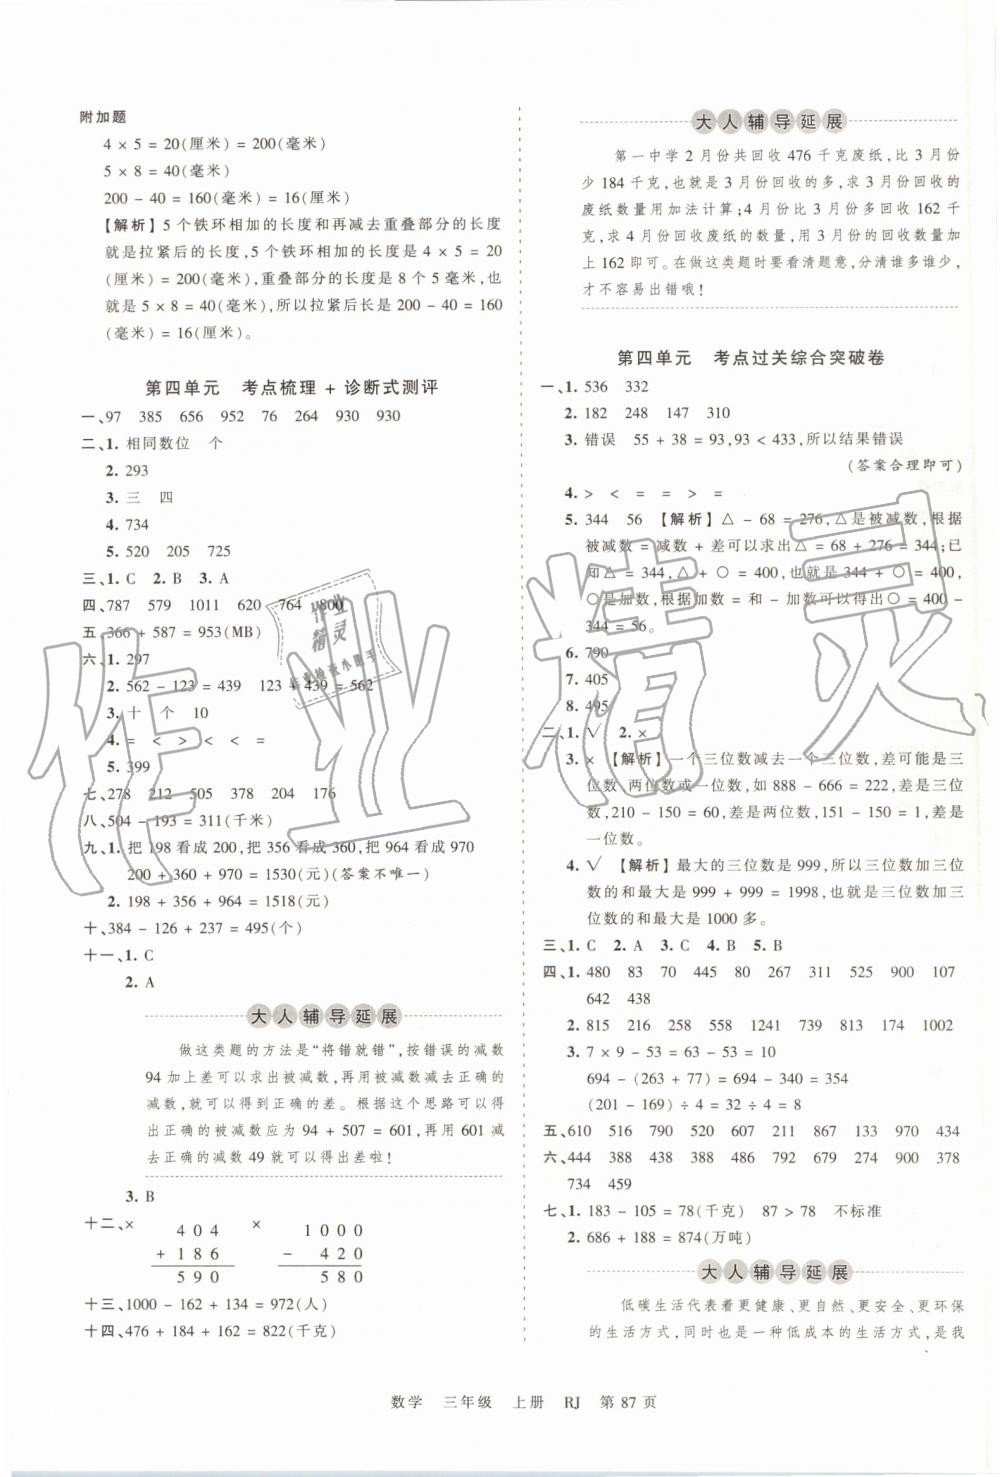 附加题
4 × 5 = 20(厘米) = 200(毫米)
5 × 8 = 40(毫米)
200 - 40 = 160(毫米) = 16(厘米)
【解析】5 个铁环相加的长度和再减去重叠部分的长度
就是拉紧后的长度,5 个铁环相加的长度为 4 × 5 = 20
(厘米) = 200(毫米),重叠部分的长度是 8 个 5 毫米,也
就是 5 × 8 = 40(毫米),所以拉紧后长是 200 - 40 = 160
(毫米) = 16(厘米)。
第四单元 考点梳理 + 诊断式测评
一、97 385 656 952 76 264 930 930
二、1. 相同数位 个
2. 293
3. 三 四
4. 734
5. 520 205 725
三、1. C 2. B 3. A
四、787 579 1011 620 764 800
五、366 + 587 = 953(MB)
六、1. 297
2. 562 - 123 = 439 123 + 439 = 562
3. 十 个 10
4. = < > < < =
5. 399
七、278 212 505 378 204 176
八、504 - 193 = 311(千米)
九、1. 把 198 看成 200,把 356 看成 360,把 964 看成 970
200 + 360 + 970 = 1530(元)(答案不唯一)
2. 198 + 356 + 964 = 1518(元)
十、384 - 126 + 237 = 495(个)
十一、1. C
2. A
大人辅导延展
做这类题的方法是“将错就错”,按错误的减数
94 加上差可以求出被减数,再用被减数减去正确的
减数,就可以得到正确的差。根据这个思路可以得
出正确的被减数应为 94 + 507 = 601,再用 601 减
去正确的减数 49 就可以得出差啦!
3. B
十二、× 404 × 1000
+ 186 - 420
590 580
十三、1000 - 162 + 134 = 972(人)
十四、476 + 184 + 162 = 822(千克)
大人辅导延展
第一中学 2 月份共回收 476 千克废纸,比 3 月份
少 184 千克,也就是 3 月份回收的多,求 3 月份回收的
废纸数量用加法计算;4 月份比 3 月份多回收 162 千
克,求 4 月份回收废纸的数量,用 3 月份的回收数量加
上 162 即可。在做这类题时要看清题意,分清谁多谁少,
才不容易出错哦!
第四单元 考点过关综合突破卷
一、1. 536 332
2. 182 248 147 310
3. 错误 55 + 38 = 93,93 < 433,所以结果错误
(答案合理即可)
4. > < = = > =
5. 344 56 【解析】△ - 68 = 276,△是被减数,根据
被减数 = 减数 + 差可以求出△ = 68 + 276 = 344;已
知△ = 344,△ + ○ = 400,也就是 344 + ○ = 400,
○是加数,根据加数 = 和 - 加数可以得出○ = 400 -
344 = 56。
6. 790
7. 405
8. 495
二、1. √ 2. ×
3. × 【解析】一个三位数减去一个三位数,差可能是三
位数,两位数或一位数,如 888 - 666 = 222,差是三位
数,210 - 150 = 60,差是两位数,151 - 150 = 1,差是
一位数。
4. √ 【解析】最大的三位数是 999,所以三位数加三位
数的和最大是 999 + 999 = 1998,也就是三位数加三
位数的和最大是 1000 多。
三、1. C 2. A 3. C 4. B 5. B
四、1. 480 83 70 445 80 267 311 525 900 107
642 438
2. 815 216 258 558 1241 739 813 174 1002
3. 7 × 9 - 53 = 63 - 53 = 10
694 - (263 + 77) = 694 - 340 = 354
(201 - 169) ÷ 4 = 32 ÷ 4 = 8
五、610 516 790 520 607 211 867 133 970 434
六、444 388 438 388 296 738 296 900 378
734 459
七、1. 183 - 105 = 78(千克) 87 > 78 不标准
2. 686 + 188 = 874(万吨)
大人辅导延展
低碳生活代表着更健康、更自然、更安全、更环保
的生活方式,同时也是一种低成本的生活方式,是我
数学 三年级 上册 RJ 第 87 页
作业精灵
作业
精灵
作业检查小助手